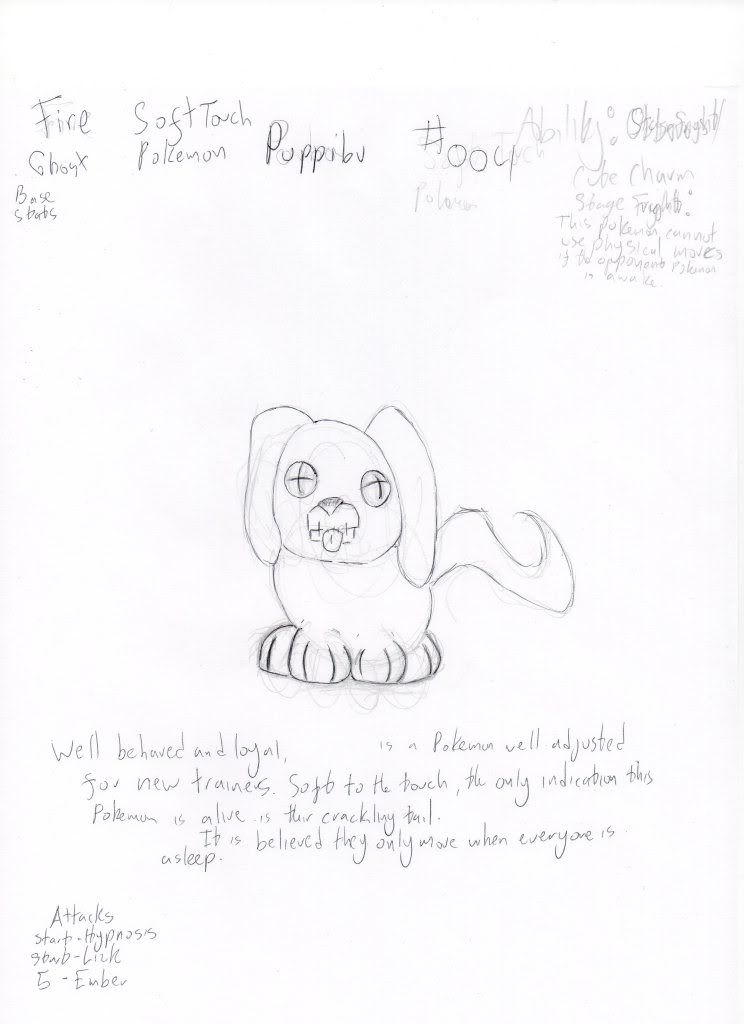 Fire
Ghost
Base
stats
Soft Touch
Pokemon
Puppibu
#004
Soft Touch
Pokemon
Ability:
Cute Charm
Stage Fright:
This pokemon cannot
use physical moves
if the opponent Pokemon
is awake.
Well behaved and loyal, is a Pokemon well adjusted
for new trainers. Soft to the touch, the only indication this
Pokemon is alive is their crackling tail.
It is believed they only move when everyone is
asleep.
Attacks
start-Hypnosis
start-Lick
5-Ember